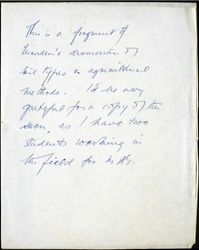 This is a fragment of
Marsden's discussion of
soil types & agricultural
methods. I'd be very
grateful for a copy of the
, as I have two
students working in
the field for M.A.s.